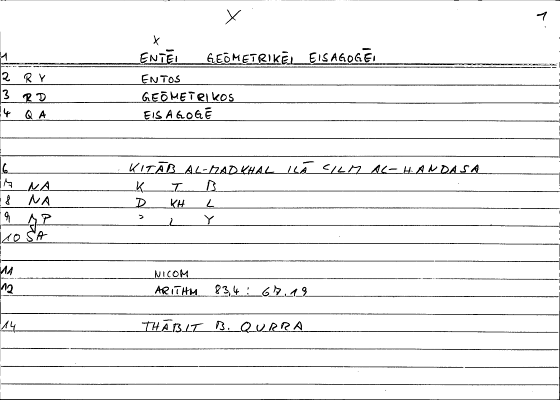 X 1
X
1 ENTĒI GEŌMETRIKĒI EISAGOGĒI
2 RY ENTOS
3 RD GEŌMETRIKOS
4 QA EISAGOGĒ
6 KITĀB AL-MADKHAL ILĀ ʿILM AL-HANDASA
7 NA K T B
8 NA D KH L
9 NP ʾ L Y
10 SA
11 NICOM
12 ARITHM 83,4 : 67.19
14 THĀBIT B. QURRA